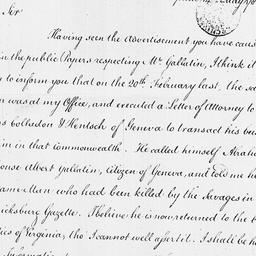 Sir
Having seen the Advertisement you have caus
in the public Papers respecting Mr. Gallatin, I think it
to inform you that on the 20th February last, the sa
n was at my Office, and executed a Letter of Attorney to
Hentsch of Geneva to transact his bus
im in that commonwealth. He called himself Abraha
onse Albert Gallatin, Citizen of Geneva, and told me h
ame Man who had been killed by the Savages in
icksburg Gazette. I believe he is now returned to the b
ies of Virginia, tho' I cannot well assert it. I shall be ha